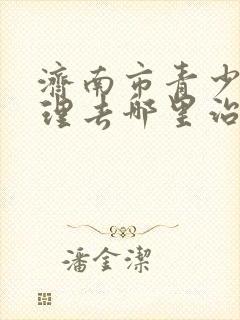 濟南市青少
理去哪里治
潘金潔